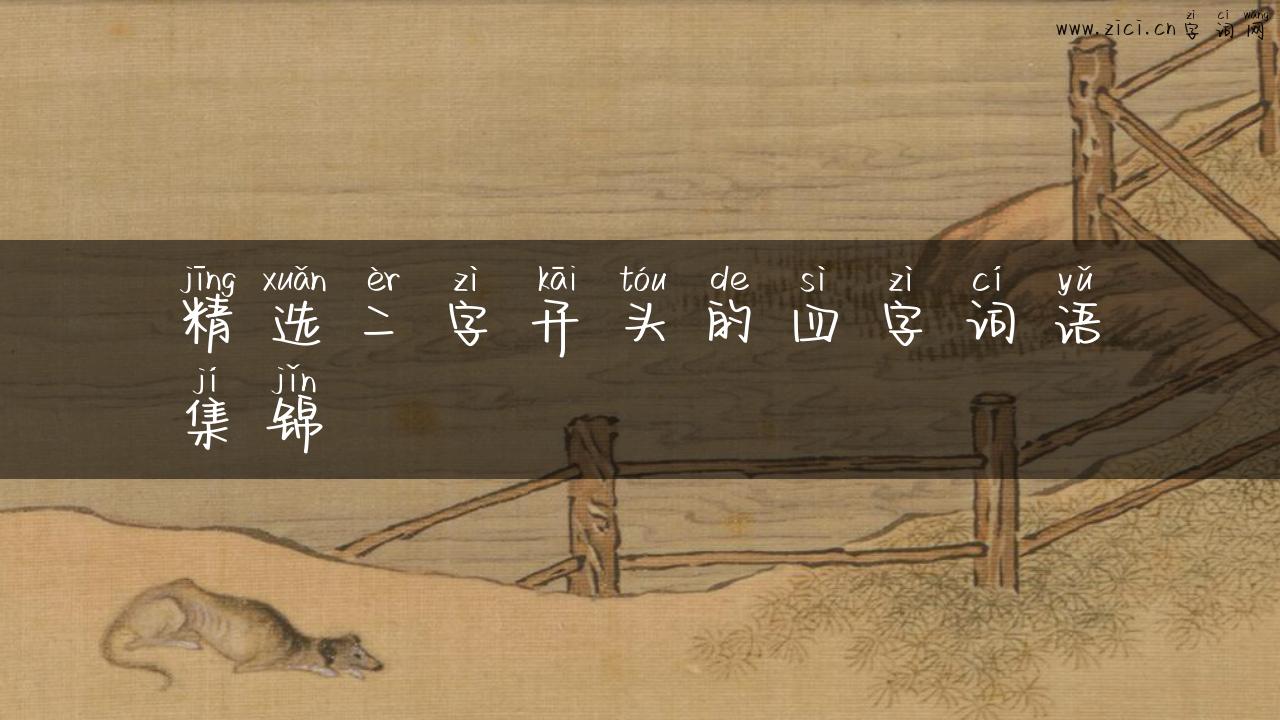 zì cí wǎng
www.zici.cn字词网
jīng xuǎn èr zì kāi tóu de sì zì cí yǔ
精选二字开头的四字词语
jí jǐn
集锦